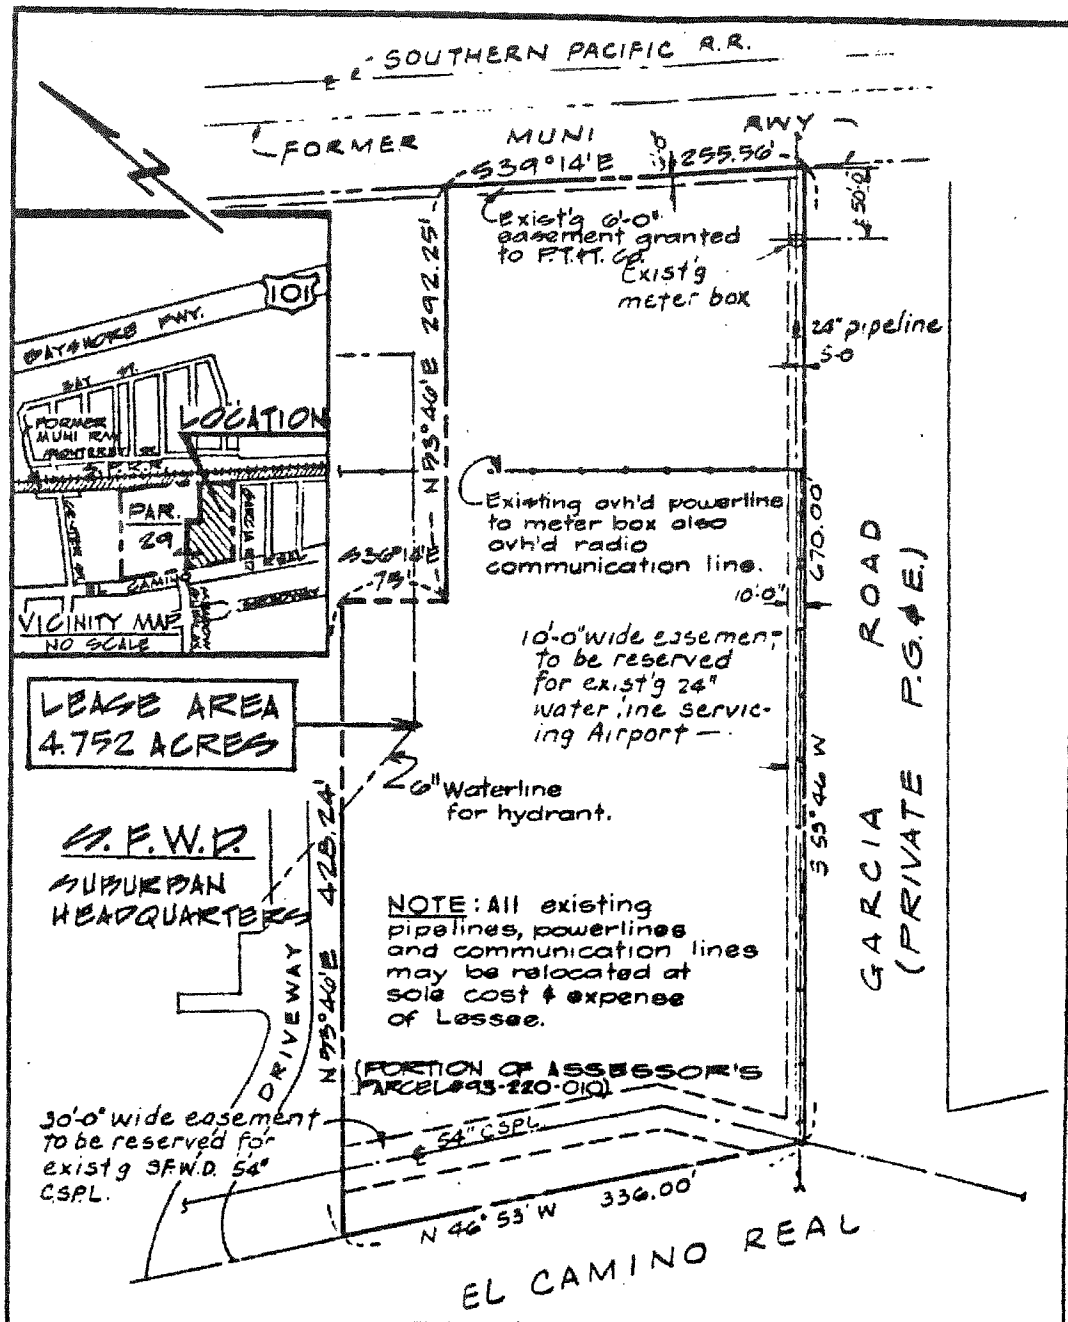 SOUTHERN PACIFIC R.R.
FORMER MUNI RWY
S39°14'E 255.56'
50'-0"
Exist'g 6'-0"
easement granted
to P.T.&T. Co.
Exist'g
meter box
24" pipeline
5-0
292.25'
N 53°46'E
101
BAYSHORE FWY.
BAY ST.
FORMER
MUNI RWY
LOCATION
S.P.R.R.
PAR.
29
GARCIA RD
EL CAMINO REAL
VICINITY MAP
NO SCALE
S36°14'E
75'
Existing ovh'd powerline
to meter box also
ovh'd radio
communication line.
10'-0"
670.00'
S 53°46' W
GARCIA ROAD
(PRIVATE P.G.&E.)
10'-0" wide easement
to be reserved
for exist'g 24"
water line servic-
ing Airport
LEASE AREA
4.752 ACRES
6" Waterline
for hydrant.
S.F.W.D.
SUBURBAN
HEADQUARTERS
DRIVEWAY
N 53°46'E 428.24'
NOTE: All existing
pipelines, powerlines
and communication lines
may be relocated at
sole cost & expense
of Lessee.
(PORTION OF ASSESSOR'S
PARCEL #93-220-010)
30'-0" wide easement
to be reserved for
exist'g S.F.W.D. 54"
C.S.P.L.
54" CSPL
N 46° 53' W 336.00'
EL CAMINO REAL